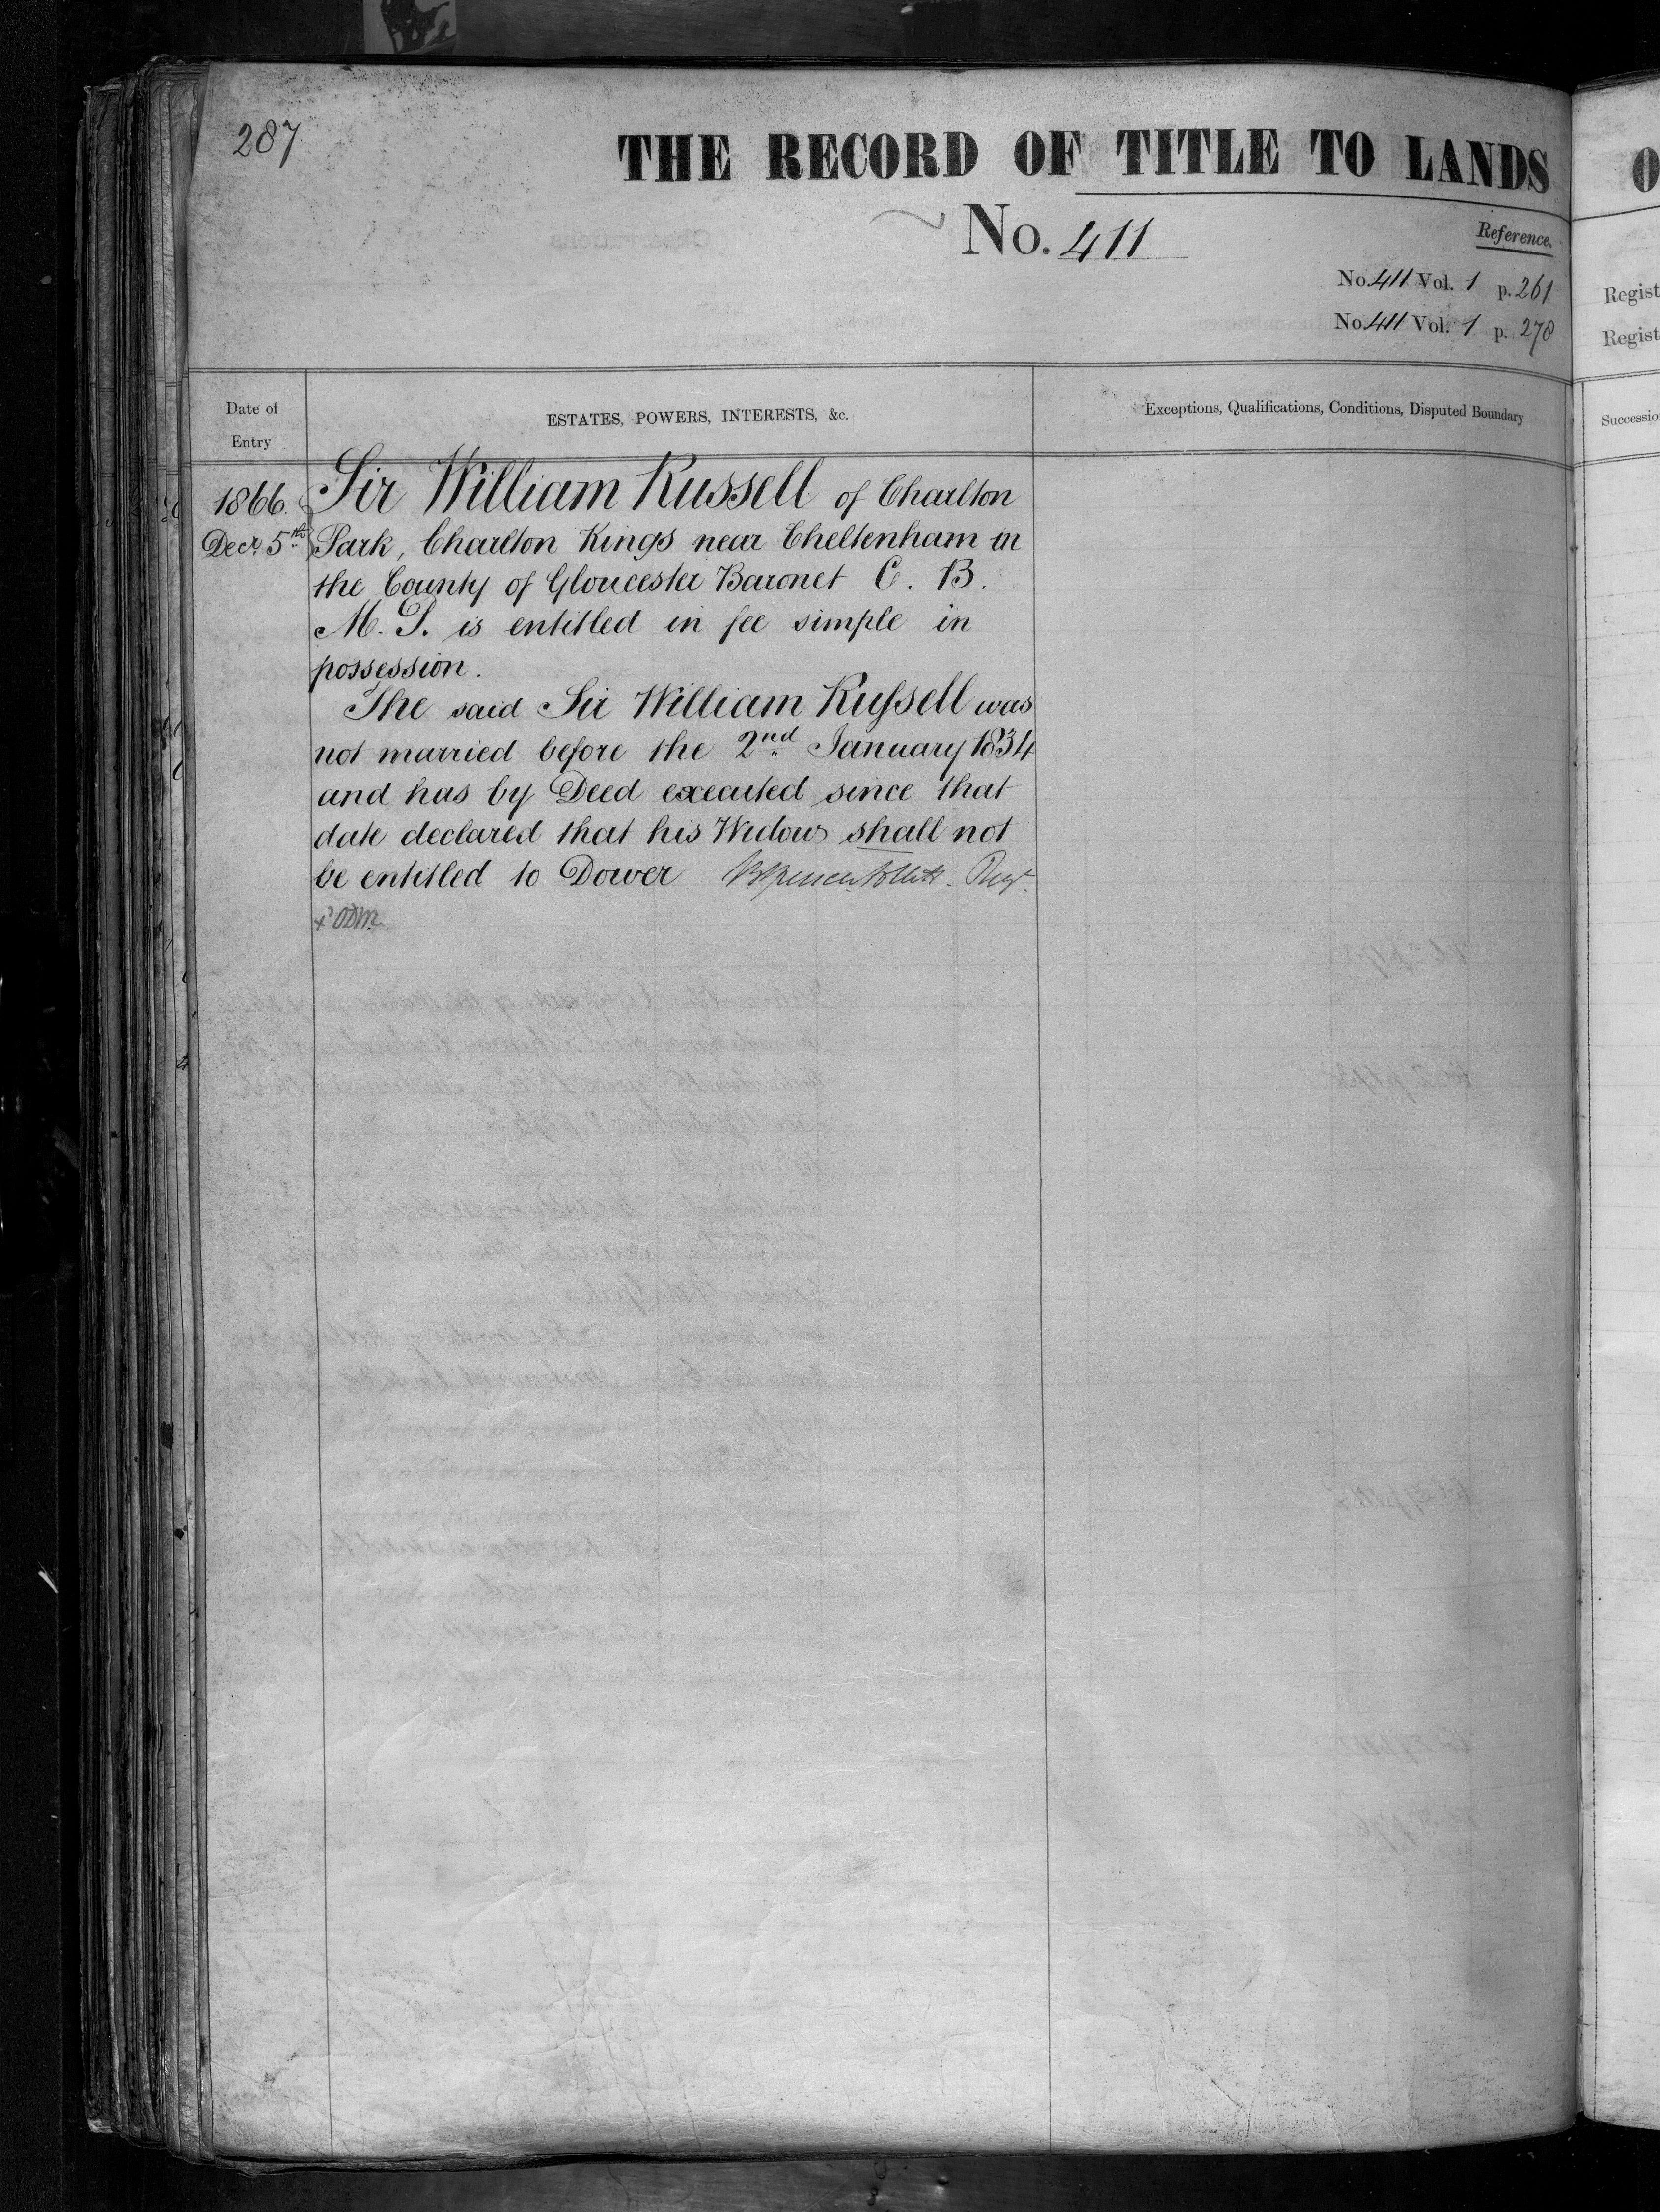 287
THE RECORD OF TITLE TO LANDS
No. 411
Reference.
No. 411 Vol. 1 p. 261
No. 411 Vol. 1 p. 278
Date of
Entry
ESTATES, POWERS, INTERESTS, &c.
Exceptions, Qualifications, Conditions, Disputed Boundary
1866.
Decr. 5th
Sir William Russell of Charlton
Park, Charlton Kings near Cheltenham in
the County of Gloucester Baronet C. B.
M. P. is entitled in fee simple in
possession.
The said Sir William Russell was
not married before the 2nd January 1834
and has by Deed executed since that
date declared that his Widow shall not
be entitled to Dower
O
Regist
Regist
Successio